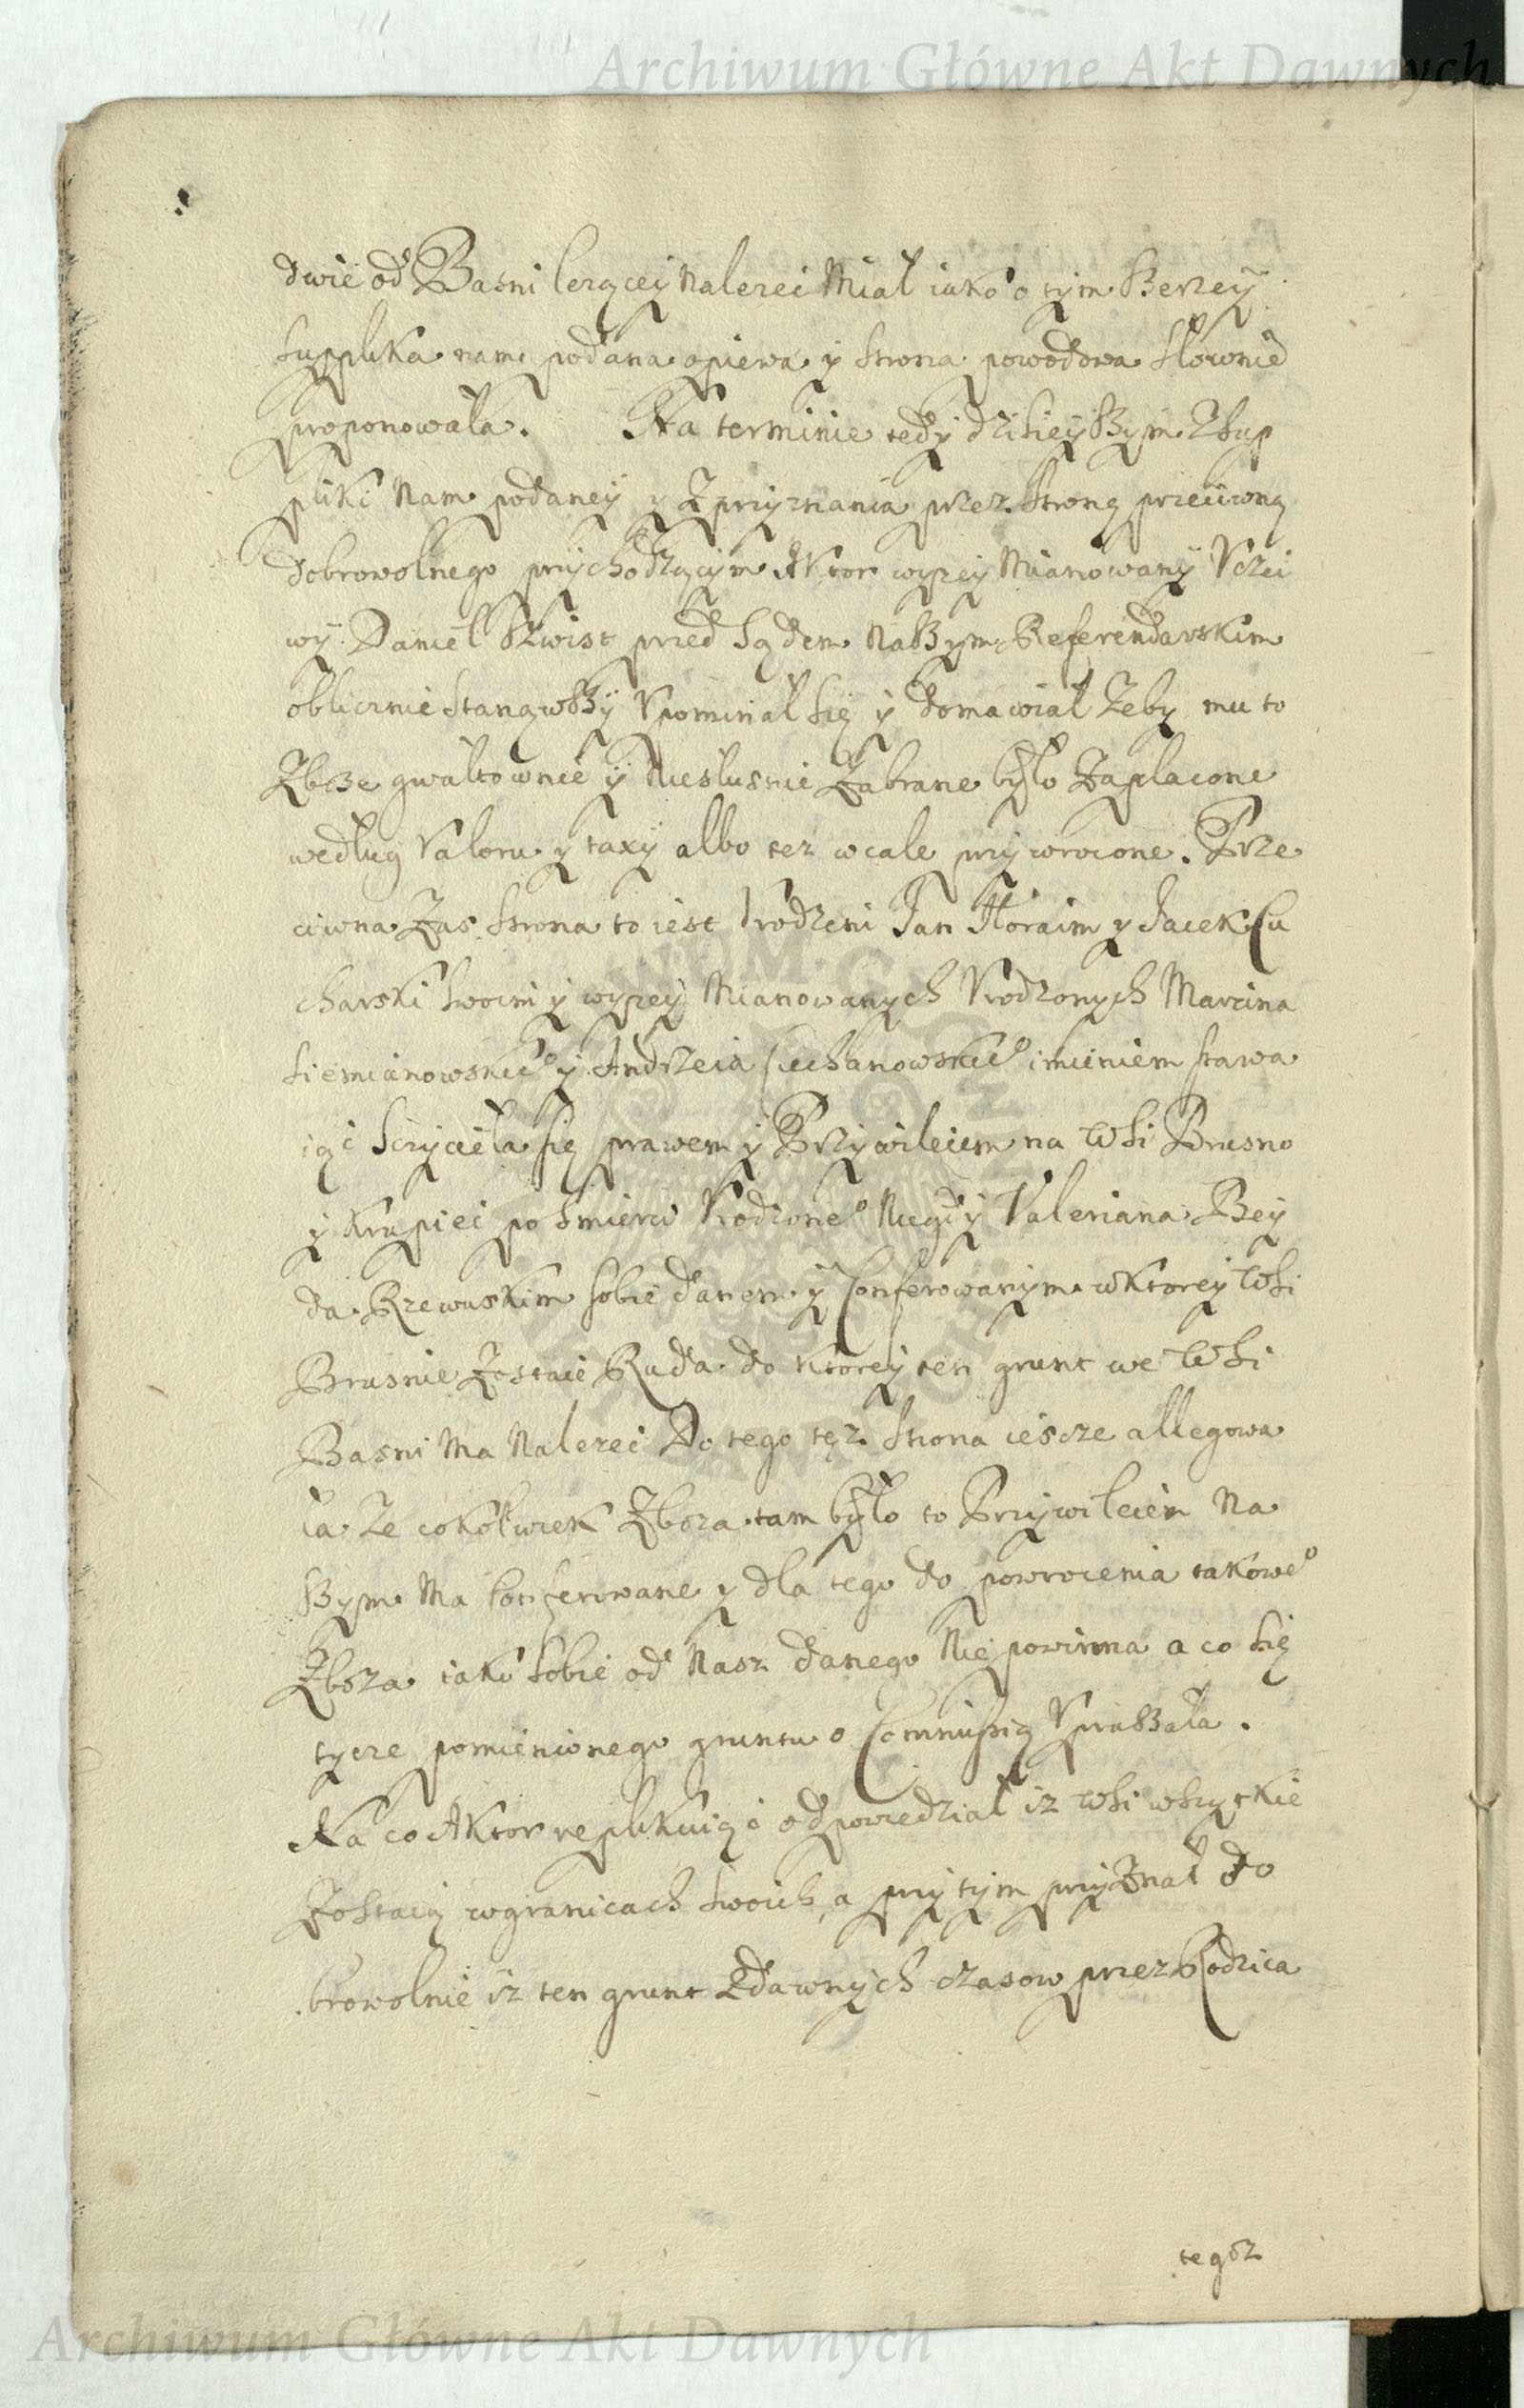 Archiwum Główne Akt Dawnych
dwie od Basni lezącey nalezeć Miał iako o tym szerzey
supplika nam podana opiewa y strona powodowa słownie
proponowała. Na terminie tedy dzisieyszym Z sup
pliki Nam podaney y Z przyznania przez stronę przeciwną
dobrowolnego przychodzącym Aktor wyzey Mianowany Vczci
wy Daniel Szwist przed Sądem Naszym Referendarskim
oblicznie stanąwszy Vpominał się y domawiał Zeby mu to
Zboze gwałtownie y Niesłusnie Zabrane było Zapłacone
według Valoru y taxy albo tez wcale przywrocone. Prze
ciwna Zas strona to iest Vrodzeni Jan Horaim y Jacek Cu
charski swoim y wyzey Mianowanych Vrodzonych Marcina
Siemianowskie° y Andrzeia Ciechanowskie° imieniem stawa
iąc sczyciela się prawem y Przywileiem na Wsi Brusno
y Krupiec po smierci Vrodzone° Niegdy Valeriana Bey
da Rzewuskim sobie danem y Conferowanym w ktorey Wsi
Brusnie Zostaie Ruda do ktorey ten grunt we Wsi
Basni Ma Nalezec Do tego tęz strona iescze allegowa
ła Ze cokolwiek Zboza tam było to Przywileiem Na
szym Ma konferowane y dla tego do powrocenia takowe°
Zboza iako sobie od Nasz danego Nie powinna a co się
tycze pomienionego gruntu o Commissią Vpraszała.
Na co Aktor replikuiąc odpowiedział iz Wsi wszytkie
Zostaią w granicach swoich, a przy tym przyznał do
browolnie iz ten grunt Z dawnych czasow przez Rodzica
tegoz
Archiwum Główne Akt Dawnych